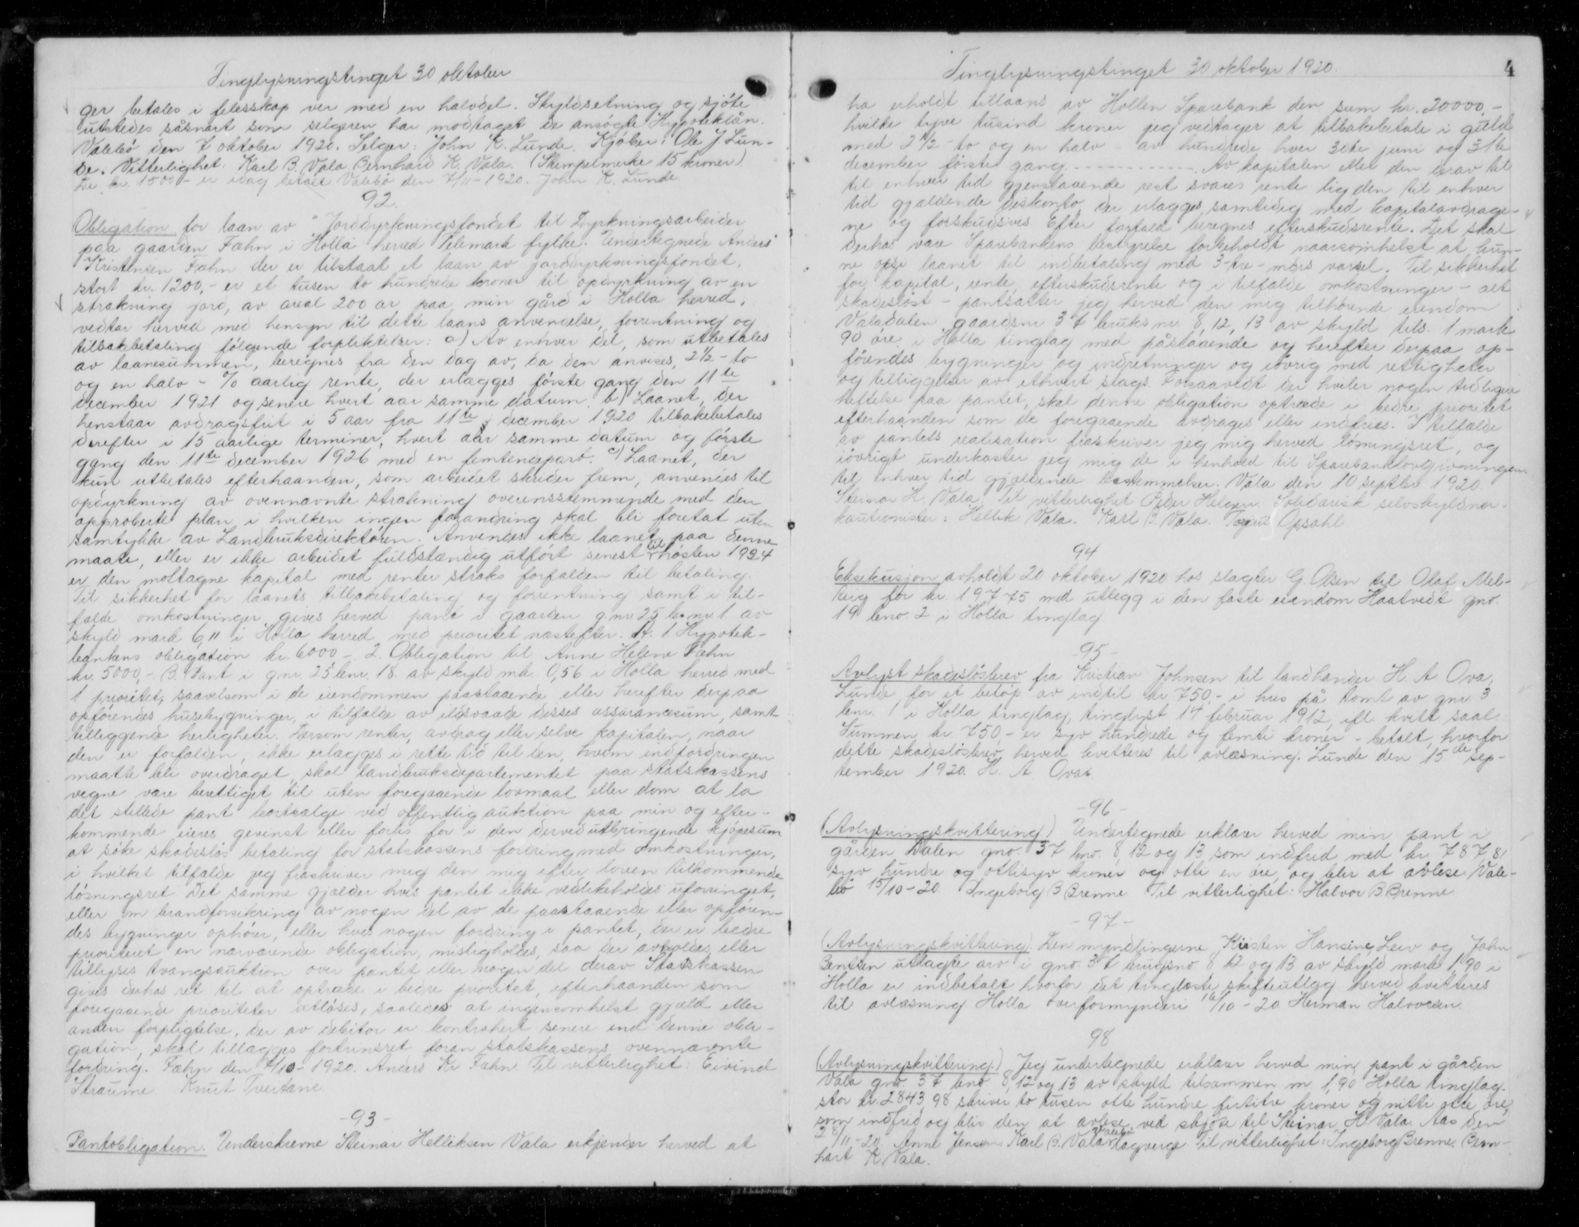 Tinglysningstinget 30 oktober
ger betales i felesskap ver med en halvdel. Skyldsetning og sjöte
utstedes såsnart som selgeren har modtaget de ansögte Hypoteklån.
Valebö den 7 oktober 1920. Selger: John K. Lunde. Kjöber: Ole J Lun-
de. Vitterlighet: Karl B. Vala Bernhard K. Vala. (Stempelmerke 15 kroner)
kr. 1500 - er idag betalt Valebö den 7/11-1920. John K. Lunde
92.
Obligation for laan av Jorddyrkningsfondet til Dyrkningsarbeider
paa gaarden Fæhn i Holla herred Telemark fylke. Undertegnede Anders
Kristensen Fæhn der er tilstaat et laan av jorddyrkningsfondet,
stort kr. 1200,- er et tusen to hundrede kroner til opdyrkning av en
strækning jord, av areal 200 ar paa min gård i Holla herred,
vedtar herved med hensyn til dette laans anvendelse, forrentning og
tilbakbetaling fölgende forpliktelser: a) Av enhver del, som utbetales
av laanesummen, beregnes fra den dag av, da den anvises, 2½ - to
og en halv - % aarlig rente, der erlægges förste gang den 11te
december 1921 og senere hvert aar samme datum. b) Laanet, der
henstaar avdragsfrit i 5 aar fra 11te december 1920 tilbakebetales
derefter i 15 aarlige terminer, hvert aar samme datum og förste
gang den 11te december 1926 med en femtendepart. c) Laanet, der
kun utbetales efterhaanden, som arbeidet skrider frem, anvendes til
opdyrkning av ovennævnte strækning overensstemmende med den
approberte plan i hvilken ingen forandring skal bli foretat uten
samtykke av Landbruksdirektören. Anvendes ikke laanet paa denne
maate, eller er ikke arbeidet fuldstændig utfört senest til hösten 1924
er den mottagne kapital med renter straks forfalden til betaling.
Til sikkerhet for laanets tilbakebetaling og forrentning samt i til-
fælde omkostninger gives herved pant i gaarden g.nr 25 b.nr 1 av
skyld mark 6,11 i Holla herred med prioritet næstefter: A. 1 Hypotek-
bankens obligation kr. 6000 - 2. Obligation til Anne Helene Fæhn
kr. 5000,- B. Pant i gnr. 25 bnr. 18 av skyld mk 0,56 i Holla herred med
1 prioritet, saavelsom i de eiendommen paastaaende eller herefter derpaa
opförendes husebygninger, i tilfælde av ildsvaade desses assurancesum, samt
tilliggende herligheter. Dersom renter, avdrag eller selve kapitalen, naar
den er forfalden, ikke erlægges i rette tid til den, hvem indfordringen
maatte bli overdraget, skal landbruksdepartementet paa statskassens
vegne være berettiget til uten foregaaende lovmaal eller dom at la
det stillede pant bortsælge ved offentlig auktion paa min og efter-
kommende eieres gevinst eller forlis for i den derved utbringende kjöpesum
at söke skadeslös betaling for statskassens fordring med omkostninger,
i hvilket tilfælde jeg fraskriver meg den mig efter loven tilkommende
lösningsret. Det samme gjælder hvis pantet ikke vedlikeholdes uforringet,
eller om brandforsikring av nogen del av de paastaaende eller opfören-
des bygninger ophörer, eller hvis nogen fordring i pantet, der er bedre
prioritert en nærværende obligation, misligholdes, saa der avholdes eller
tillyses tvangsauktion over pantet eller nogen del derav. Statskassen
gives derhos ret til at optræde i bedre prioritet, efterhaanden som
foregaaende prioriteter utlöses, saaledes at ingensomhelst gjæld eller
anden forpligtelse, der av debitor er kontrahert senere end denne obli-
gation, skal tillægges fortrinsret foran statskassens ovennævnte
fordring. Fæhn den /10-1920. Anders Kr Fæhn Til vitterlighet: Eivind
Straume Knut Tveitane
-93-
Pantobligation. Underskrevne Steinar Helliksen Vala erkjender herved at
Tinglysningstinget 30 oktober 1920.
4
ha erholdt tillaans av Hollen Sparebank den sum kr. 20000,-
hvilke tyve tusind kroner jeg vedtager at tilbakebetale i guld
med 2½ - to og en halv - av hundrede hver 30te juni og 31te
december förste gang ............ Av kapitalen eller den derav til
til enhver tid gjenstaaende rest svares rente lig den til enhver
tid gjældende diskonto der erlægges samtidig med kapitalavdrage-
ne og forskudsvis. Efter forfald beregnes efterskudsrente. Det skal
derhos være Sparebankens bestyrelse forbeholdt naarsomhelst at kun-
ne opsi laanet til indbetaling med 3-tre-mdrs varsel. Til sikkerhet
for kapital, rente, efterskudsrente og i tilfælde omkostninger - alt
skadeslöst - pantsætter jeg herved den mig tilhörende eiendom
Valadalen gaardsnr 37 bruks nr 8, 12, 13 av skyld tils. 1 mark
90 öre i Holla tinglag med påstaaende og herefter derpaa op-
förendes bygninger og indretninger og iövrig med rettigheter
og tilliggelser av ethvert slags. Forsaavidt der hviler nogen tidligere
heftelse paa pantet, skal denne obligation optræde i bedre prioritet
efterhaanden som de foregaaende avdrages eller indfries. I tilfælde
av pantets realisation fraskriver jeg mig herved lösningsret, og
iövrigt underkaster jeg mig de i henhold til Sparebanklovgivningen
til enhver tid gjældende bestemmelser. Vala den 10 septbr 1920
Steinar H. Vala. Til vitterlighet Peder Helgen. Solidarisk selvskyldner-
kautionister: Hellik Vala. Karl B. Vala. Opsahl
94
Eksekusjon avholdt 20 oktober 1920 hos slagter G. Olsen til Olaf Mel-
for kr. 197 75 med utlegg i den faste eiendom Haatveit gnr.
19 bno 2 i Holla tinglag
95-
Avlyst skadeslösbrev fra Kristian Johnsen til landhandler H. A Ova,
Lunde for et belöp av indtil kr 750.- i hus på tomt av gnr 3
bnr. 1 i Holla tinglag, tinglyst 14 februar 1912, efl kvitt saal
Summen kr 750 - er syv hundrede og femti kroner - betalt, hvorfor
dette skadeslösbrev herved kvitteres til avlæsning. Lunde den 15de sep-
tember 1920 H. A Ovas
-96-
(Avlysningskvittering) Undertegnede erklær herved min pant i
gården Dalen gno. 37 bno. 8, 12 og 13 som indfrid med kr. 787 81
syv hundre og ottisyv kroner og otti en öre, og blir at avlese Vale-
bö 15/10-20 Ingeborg B Brenne Til vitterlighet: Halvor B Brenne
-97-
(Avlysningskvittering) Den myndlingerne Kristen Hansine, Leiv og John
Bentsen utlagte arv i gno. 37 brugsno 8 12 og 13 av skyld mark 1,90 i
Holla er indbetalt hvorfor det tinglæste skifteutlæg herved kvitteres
til avlæsning Holla overformynderi 16/10-20 Herman Halvorsen.
98
(Avlysningskvittering) Jeg undertegnede erklær herved min pant i gården
Vala gno. 37 bno 8, 12 og 13 av skyld tilsammen m. 1,90 Holla tinglag
stor kr 2843 98 skriver to tusen otte hundre firtitre kroner og nitti otte öre,
som indfrid og blir den at avlese ved skjöte til Steinar H Vala. Aas den
2/11-20 Anne Jensen Karl B. Vala lagverge Til vitterlighet: Ingeborg Brenne. Bern-
hart K Vala.